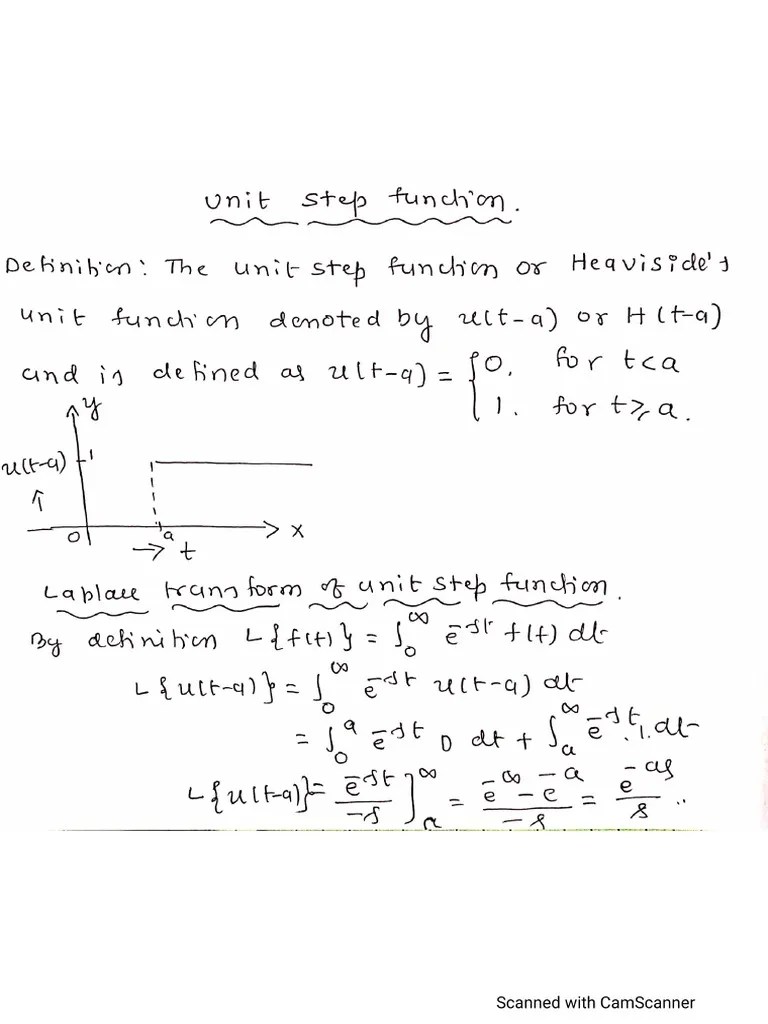 Unit step function.
Definition: The unit step function or Heaviside's
unit function denoted by u(t-a) or H(t-a)
and is defined as u(t-a) = { 0, for t<a
1. for t≥a.
y
u(t-a) 1
↑
0 a → x
→ t
Laplace transform of unit step function.
By definition L{f(t)} = ∫₀^∞ e^-st f(t) dt
L{u(t-a)} = ∫₀^∞ e^-st u(t-a) dt
= ∫₀^a e^-st 0 dt + ∫ₐ^∞ e^-st .1. dt
L{u(t-a)} = e^-st / -s ]ₐ^∞ = e^-∞ - e^-a / -s = e^-as / s ..
Scanned with CamScanner